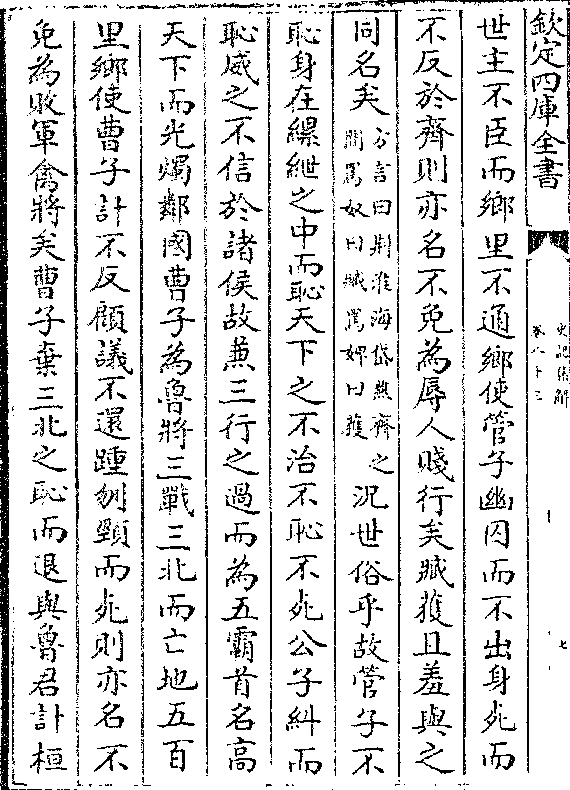 欽定四庫全書
史記集解
卷八十三
七
世主不臣而鄉里不通鄉使管子幽囚而不出身死而
不反於齊則亦名不免為辱人賤行矣臧獲且羞與之
同名矣方言曰荆淮海岱燕齊之間罵奴曰臧罵婢曰獲況世俗乎故管子不
恥身在縲紲之中而恥天下之不治不恥不死公子糾而
恥威之不信於諸侯故兼三行之過而為五霸首名高
天下而光燭鄰國曹子為魯將三戰三北而亡地五百
里鄉使曹子計不反顧議不還踵刎頸而死則亦名不
免為敗軍禽將矣曹子棄三北之恥而退與魯君計桓